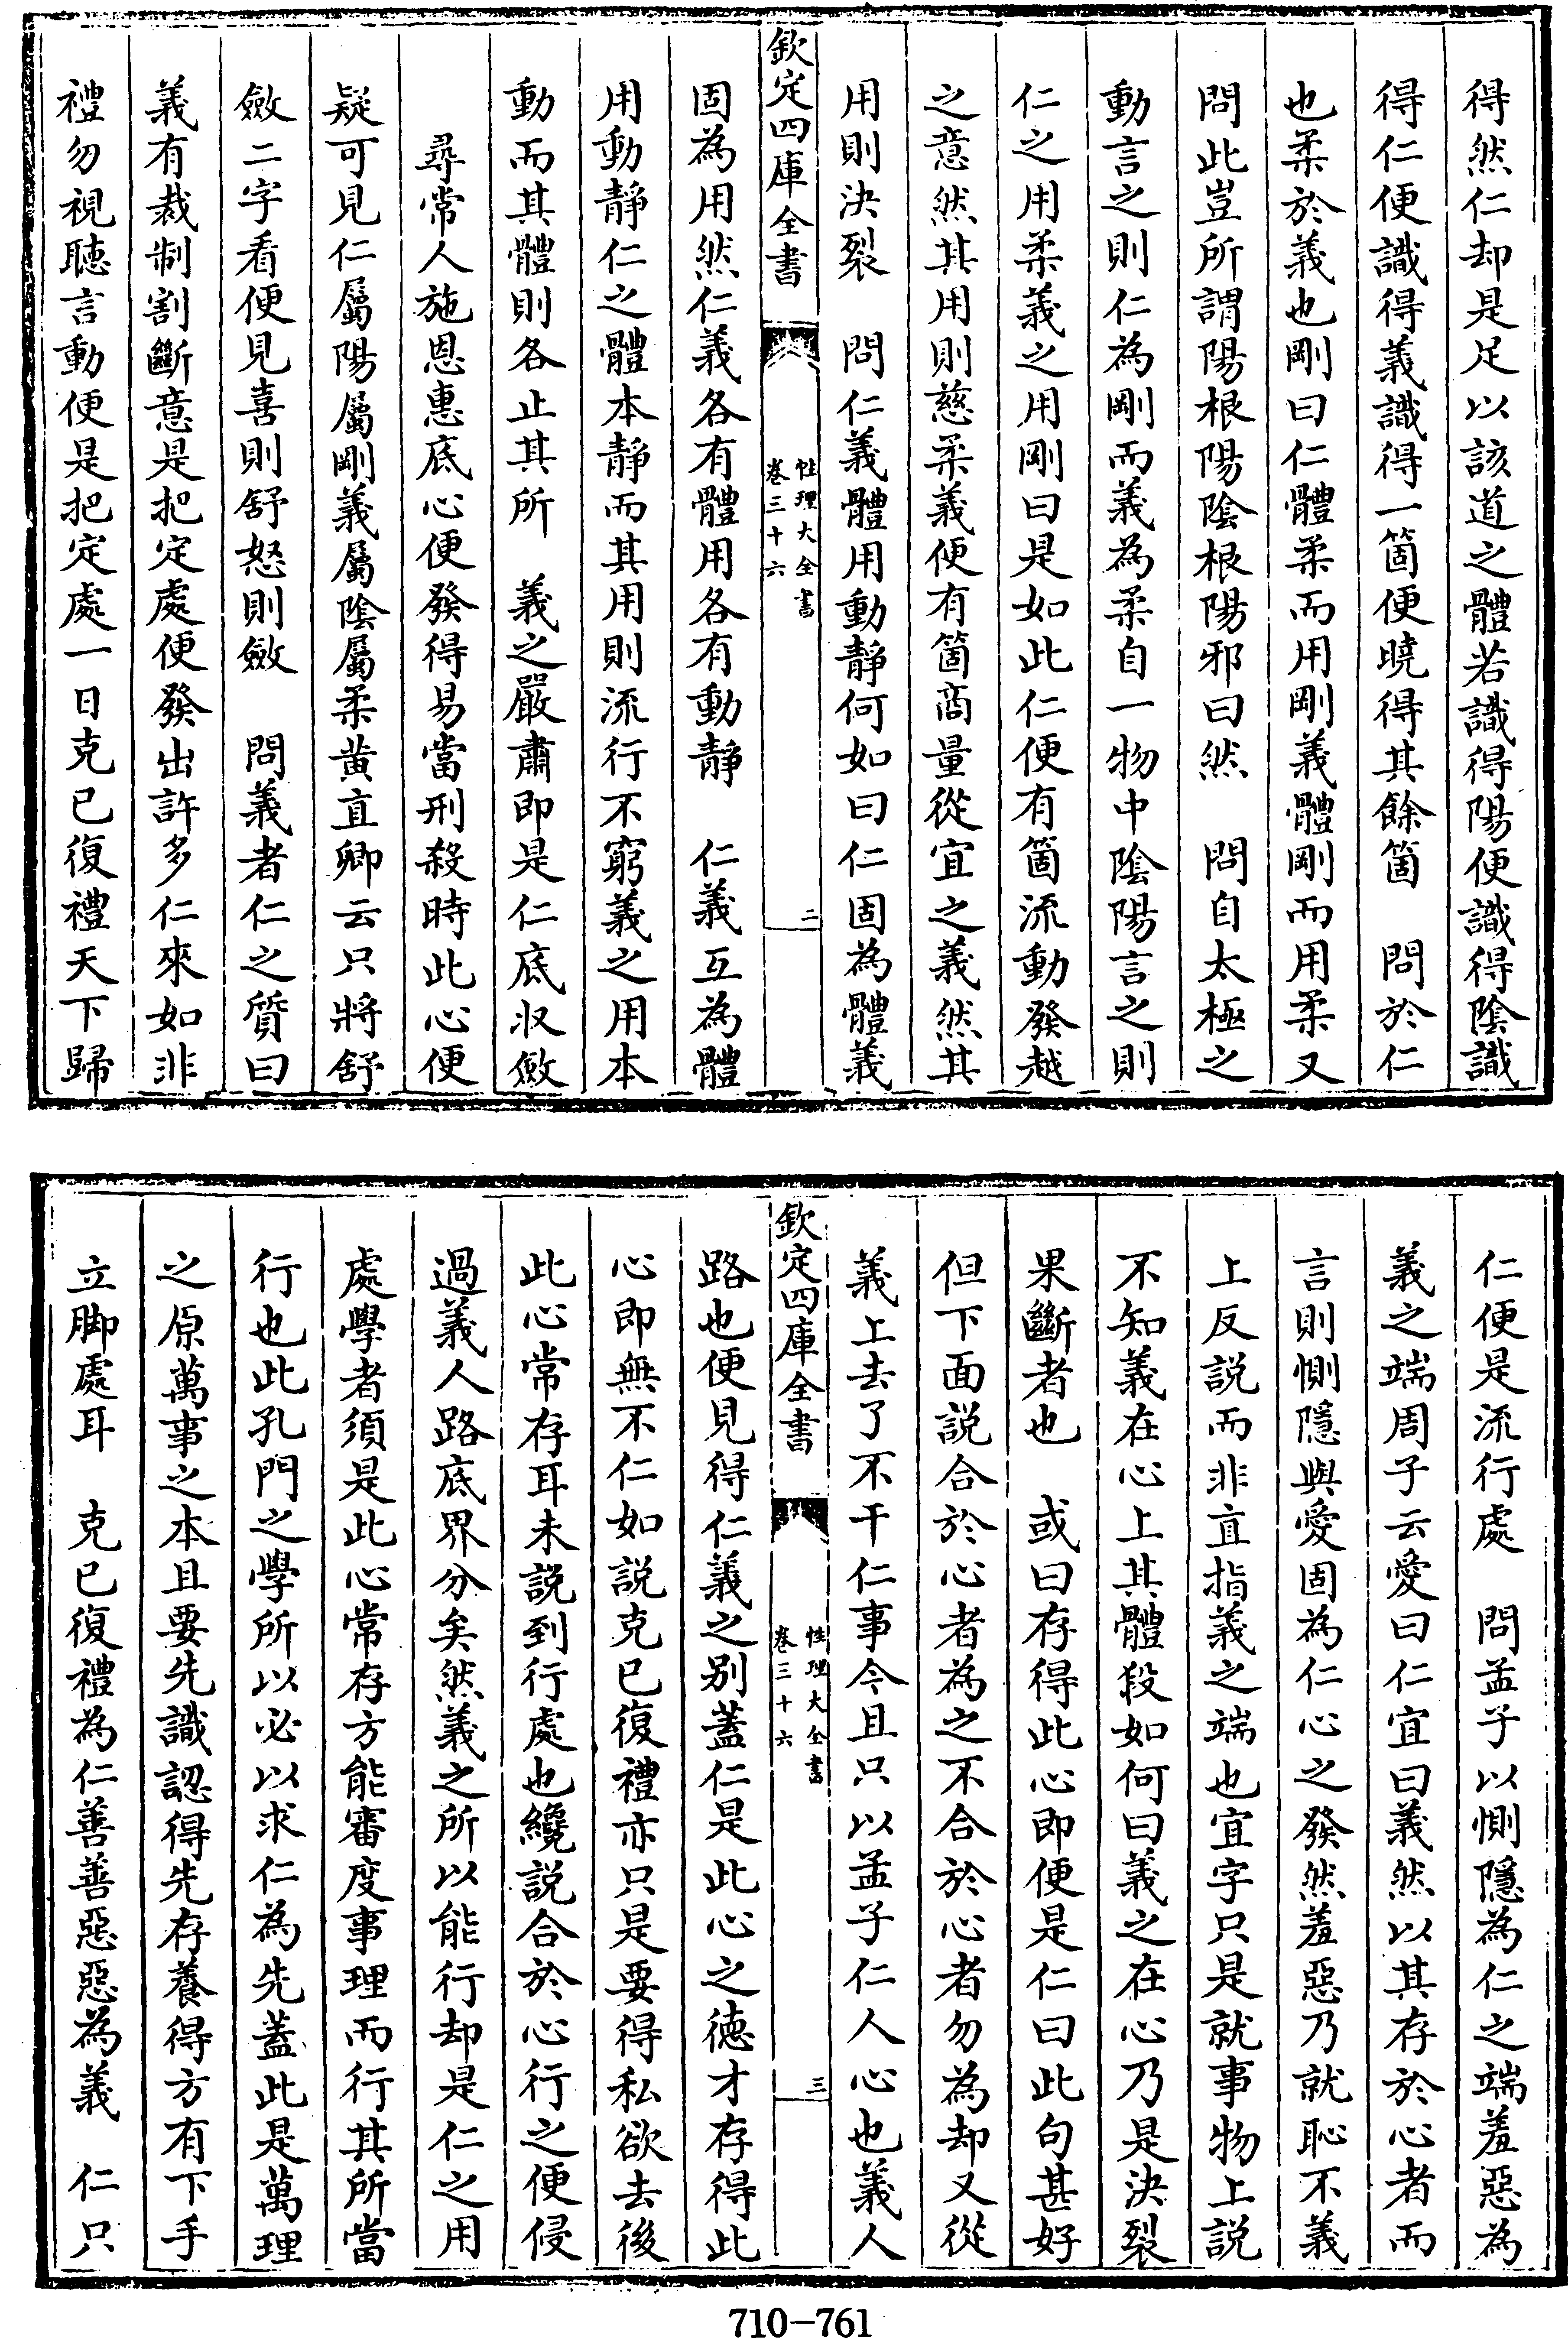 得然仁却是足以該道之體若識得陽便識得陰識
得仁便識得義識得一箇便曉得其餘箇　問於仁
也柔於義也剛曰仁體柔而用剛義體剛而用柔又
問此豈所謂陽根陰陰根陽邪曰然　問自太極之
動言之則仁為剛而義為柔自一物中陰陽言之則
仁之用柔義之用剛曰是如此仁便有箇流動發越
之意然其用則慈柔義便有箇商量從宜之義然其
用則決裂　問仁義體用動靜何如曰仁固為體義
欽定四庫全書
性理大全書
卷三十六
二
固為用然仁義各有體用各有動靜　仁義互為體
用動靜仁之體本靜而其用則流行不窮義之用本
動而其體則各止其所　義之嚴肅即是仁底收斂
尋常人施恩惠底心便發得易當刑殺時此心便
疑可見仁屬陽屬剛義屬陰屬柔黃直卿云只將舒
斂二字看便見喜則舒怒則斂　問義者仁之質曰
義有裁制割斷意是把定處便發出許多仁來如非
禮勿視聽言動便是把定處一日克已復禮天下歸
仁便是流行處　問孟子以惻隱為仁之端羞惡為
義之端周子云愛曰仁宜曰義然以其存於心者而
言則惻隱與愛固為仁心之發然羞惡乃就恥不義
上反説而非直指義之端也宜字只是就事物上説
不知義在心上其體段如何曰義之在心乃是決裂
果斷者也　或曰存得此心即便是仁曰此句甚好
但下面説合於心者為之不合於心者勿為却又從
義上去了不干仁事今且只以孟子仁人心也義人
欽定四庫全書
性理大全書
卷三十六
三
路也便見得仁義之别蓋仁是此心之徳才存得此
心即無不仁如説克已復禮亦只是要得私欲去後
此心常存耳未説到行處也纔説合於心行之便侵
過義人路底界分矣然義之所以能行却是仁之用
處學者須是此心常存方能審度事理而行其所當
行也此孔門之學所以必以求仁為先蓋此是萬理
之原萬事之本且要先識認得先存養得方有下手
立脚處耳　克已復禮為仁善善惡惡為義　仁只
710-761